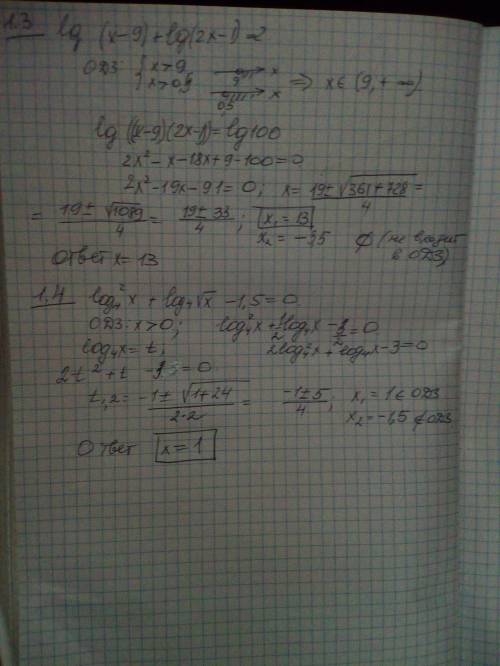 1.3 lg (x-9)+lg(2x-1)=2
ОДЗ: { x>9 9 x
x>0,5 0,5 x => x∈(9,+∞)
lg((x-9)(2x-1))=lg100
2x²-x-18x+9-100=0
2x²-19x-91=0; x=(19±√(361+728))/4=
=(19±√1089)/4=(19±33)/4; x₁=13
x₂=-3,5 ∅ (не входит в ОДЗ)
Ответ x=13
1.4 log₄²x+log₄√x-1,5=0
ОДЗ: x>0; log₄²x+½log₄x-3/2=0
log₄x=t; 2log₄²x+log₄x-3=0
2t²+t-3=0
t₁,₂=(-1±√(1+24))/(2·2)=(-1±5)/4; x₁=1∈ОДЗ
x₂=-1,5∉ОДЗ
Ответ x=1